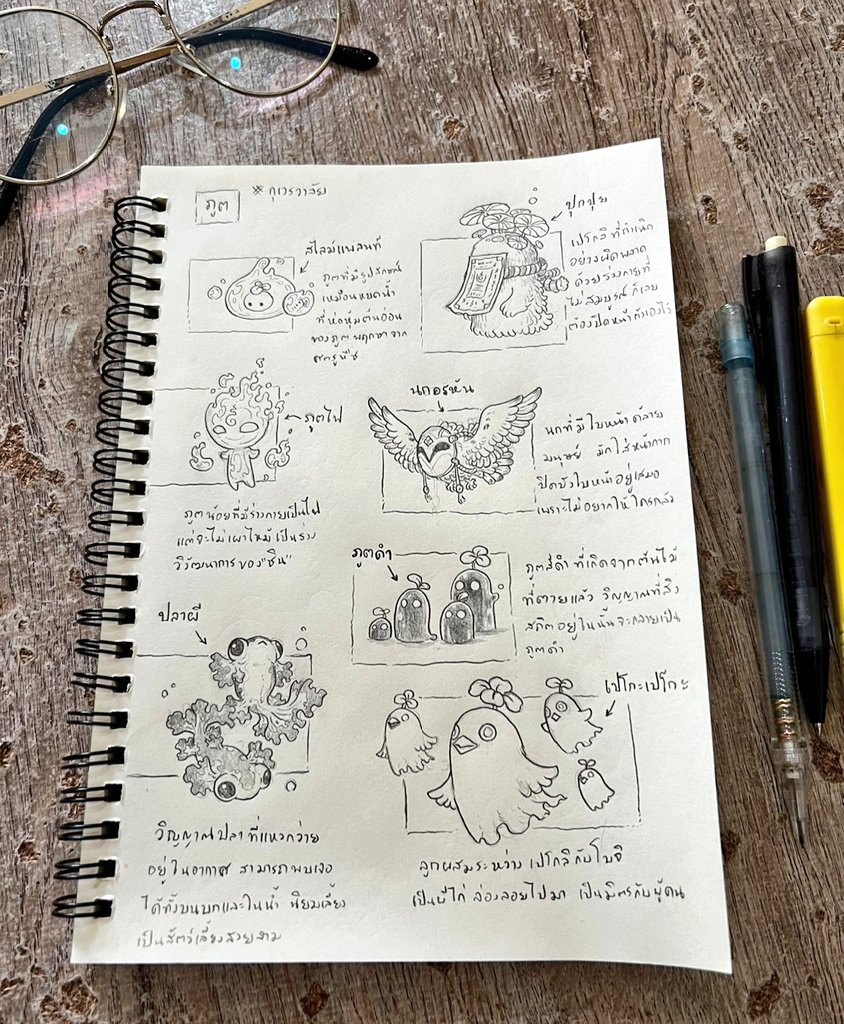 ภูต
* กุเวรวาลัย
สไลม์แพลนท์
ภูตที่มีรูปลักษณ์
เหมือนหยดน้ำ
ที่ห่อหุ้มต้นอ่อน
ของภูตพฤกษาจาก
ศัตรูพืช
ปุกปุย
เปโกลิที่กำเนิด
อย่างผิดพลาด
ด้วยร่างกายที่
ไม่สมบูรณ์ ก็เลย
ต้องปิดหน้าตัวเองไว้
ภูตไฟ
ภูตน้อยที่มีร่างกายเป็นไฟ
แต่จะไม่เผาไหม้ เป็นร่าง
วิวัฒนาการของ "ชิน"
นกอรหัน
นกที่มีใบหน้าคล้าย
มนุษย์ มักใส่หน้ากาก
ปิดบังใบหน้าอยู่เสมอ
เพราะไม่อยากให้ใครกลัว
ภูตดำ
ภูตสีดำ ที่เกิดจากต้นไม้
ที่ตายแล้ว วิญญาณที่สิง
สถิตอยู่ในนั้นจะกลายเป็น
ภูตดำ
ปลาผี
วิญญาณปลาที่แหวกว่าย
อยู่ในอากาศ สามารถพบเจอ
ได้ทั้งบนบกและในน้ำ นิยมเลี้ยง
เป็นสัตว์เลี้ยงสวยงาม
เปโกะเปโกะ
ลูกผสมระหว่าง เปโกลิกับโบจิ
เป็นผีไก่ ล่องลอยไปมา เป็นมิตรกับผู้คน